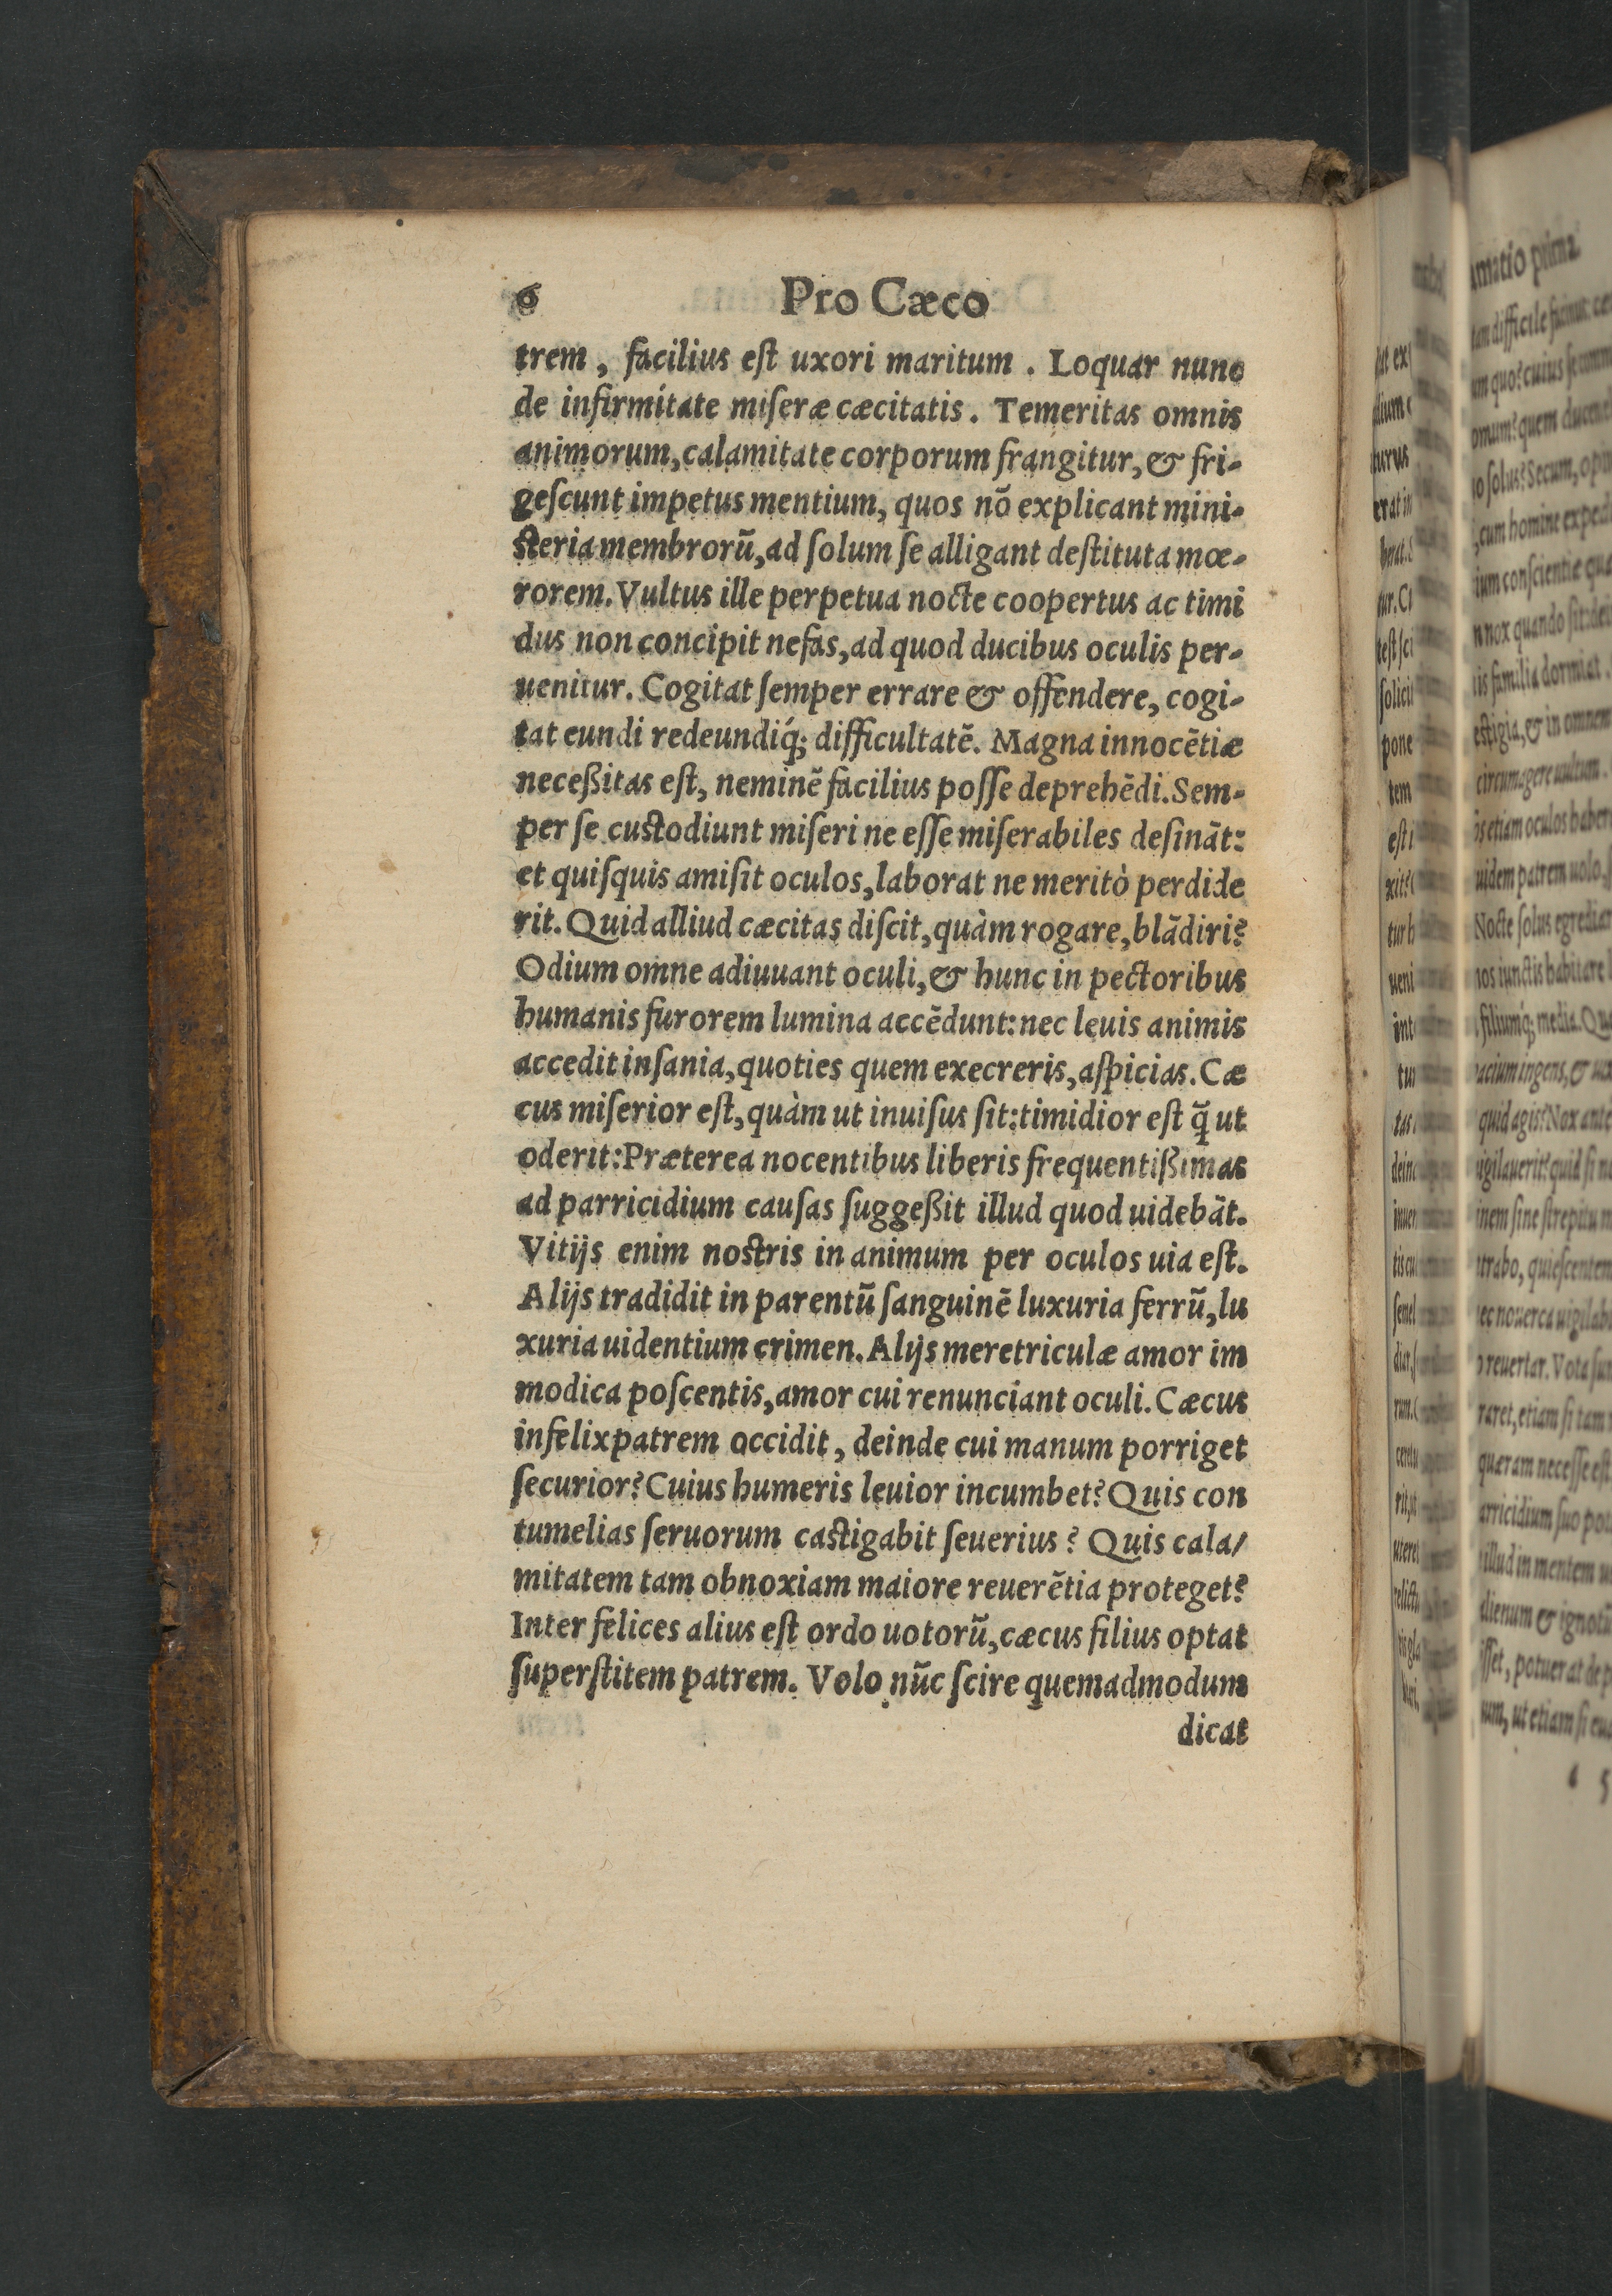 6 Pro Cæco
trem, facilius eſt uxori maritum. Loquar nunc
de infirmítate miſeræ cæcitatis. Temeritas omnis
animorum, calamitate corporum frangitur, & fri-
geſcunt impetus mentium, quos nō explicant mini-
ſteria membrorū, ad ſolum ſe alligant deſtituta mœ-
rorem. Vultus ille perpetua nocte coopertus ac timi
dus non concipit nefas, ad quod ducibus oculis per-
uenitur. Cogitat ſemper errare & offendere, cogi-
tat eundi redeundiq́; difficultatē. Magna innocētiæ
neceßitas eſt, neminē facilius poſſe deprehēdi. Sem-
per ſe cuſtodiunt miſeri ne eſſe miſerabiles deſināt:
et quiſquis amiſit oculos, laborat ne meritò perdide
rit. Quid alliud cæcitas diſcit, quàm rogare, blādiri?
Odium omne adiuuant oculi, & hunc in pectoribus
humanis furorem lumina accēdunt: nec leuis animis
accedit inſania, quoties quem execreris, aſpicias. Cæ
cus miſerior eſt, quàm ut inuiſus ſit: timidior eſt q̄ ut
oderit: Præterea nocentibus liberis frequentißimas
ad parricidium cauſas ſuggeßit illud quod uidebāt.
Vitijs enim noſtris in animum per oculos uia eſt.
Alijs tradidit in parentū ſanguinē luxuria ferrū, lu
xuria uidentium crimen. Alijs meretriculæ amor im
modica poſcentis, amor cui renunciant oculi. Cæcus
infelix patrem occidit, deinde cui manum porriget
ſecurior? Cuius humeris leuior incumbet? Quis con
tumelias ſeruorum caſtigabit ſeuerius? Quis cala/
mitatem tam obnoxiam maiore reuerētia proteget?
Inter felices alius eſt ordo uotorū, cæcus filius optat
ſuperſtitem patrem. Volo nūc ſcire quemadmodum
dicat